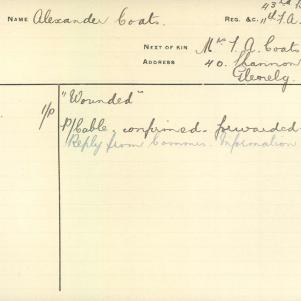 43rd
NAME Alexander Coats. REG. &C. 11th F.A.
NEXT OF KIN Mrs I. A. Coats
ADDRESS 40. Shannon
Glenelg.
"Wounded"
1/P
P/Cable, confirmed. forwarded
Reply from Commr. Information